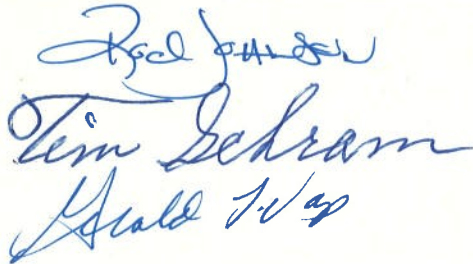 Rod Johnson
Tim Schram
Gerald